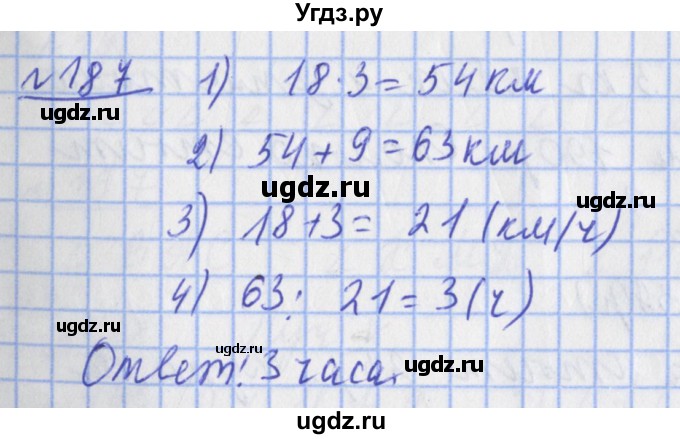 Угдз.ру
№187 1) 18·3=54км
ugdz.ru
2) 54+9=63км
ugdz.ru
ugdz.ru
3) 18+3= 21(км/ч)
4) 63: 21=3(ч)
ugdz.ru ugdz.ru
ugdz.ru
Ответ: 3 часа.
ugdz.ru